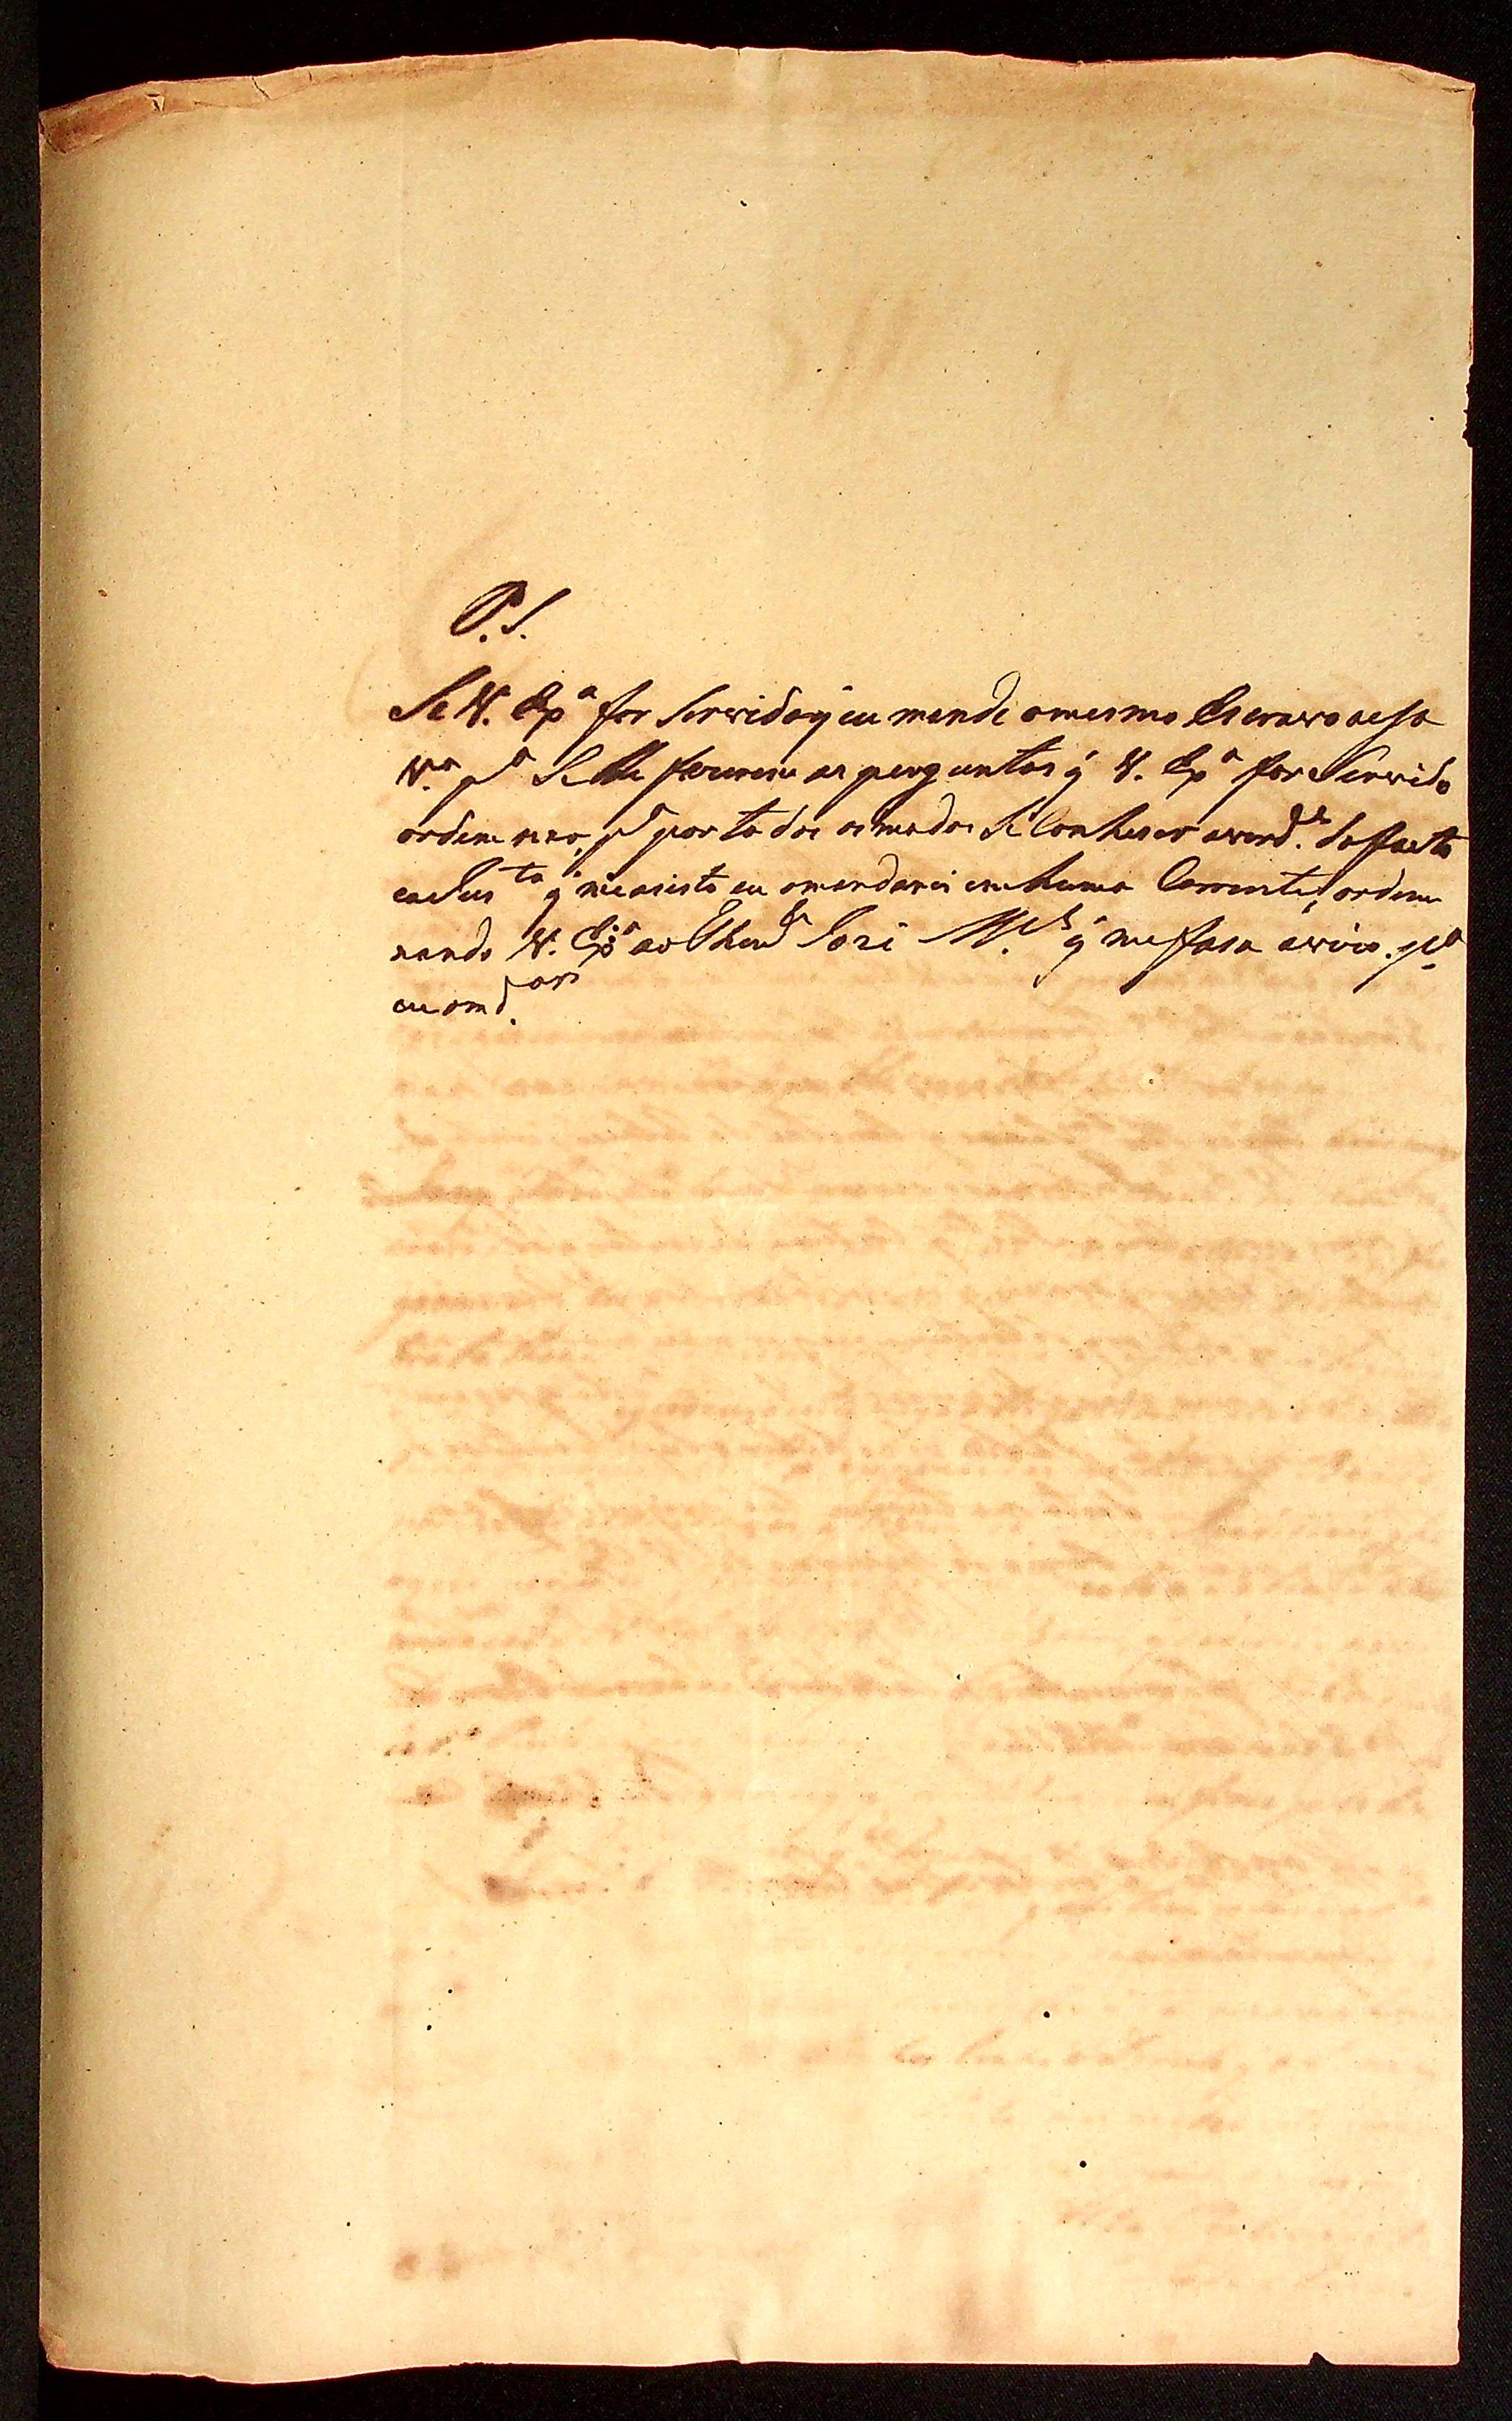 P. S.
Se V. Exª for Servido q̃ eu mande o mesmo Escravo a esa
Vª pª Se lhe fazerem as perguntas q̃ V. Exª for Servido
ordenar, pª por todos os modos Se Conheser a verd.e do facto
q̃ me asiste eu o mandarei em huma Corrente, orde
nando V. Exª ao Then.e Jozé q̃ me fasa avizo pª
eu o md.ar